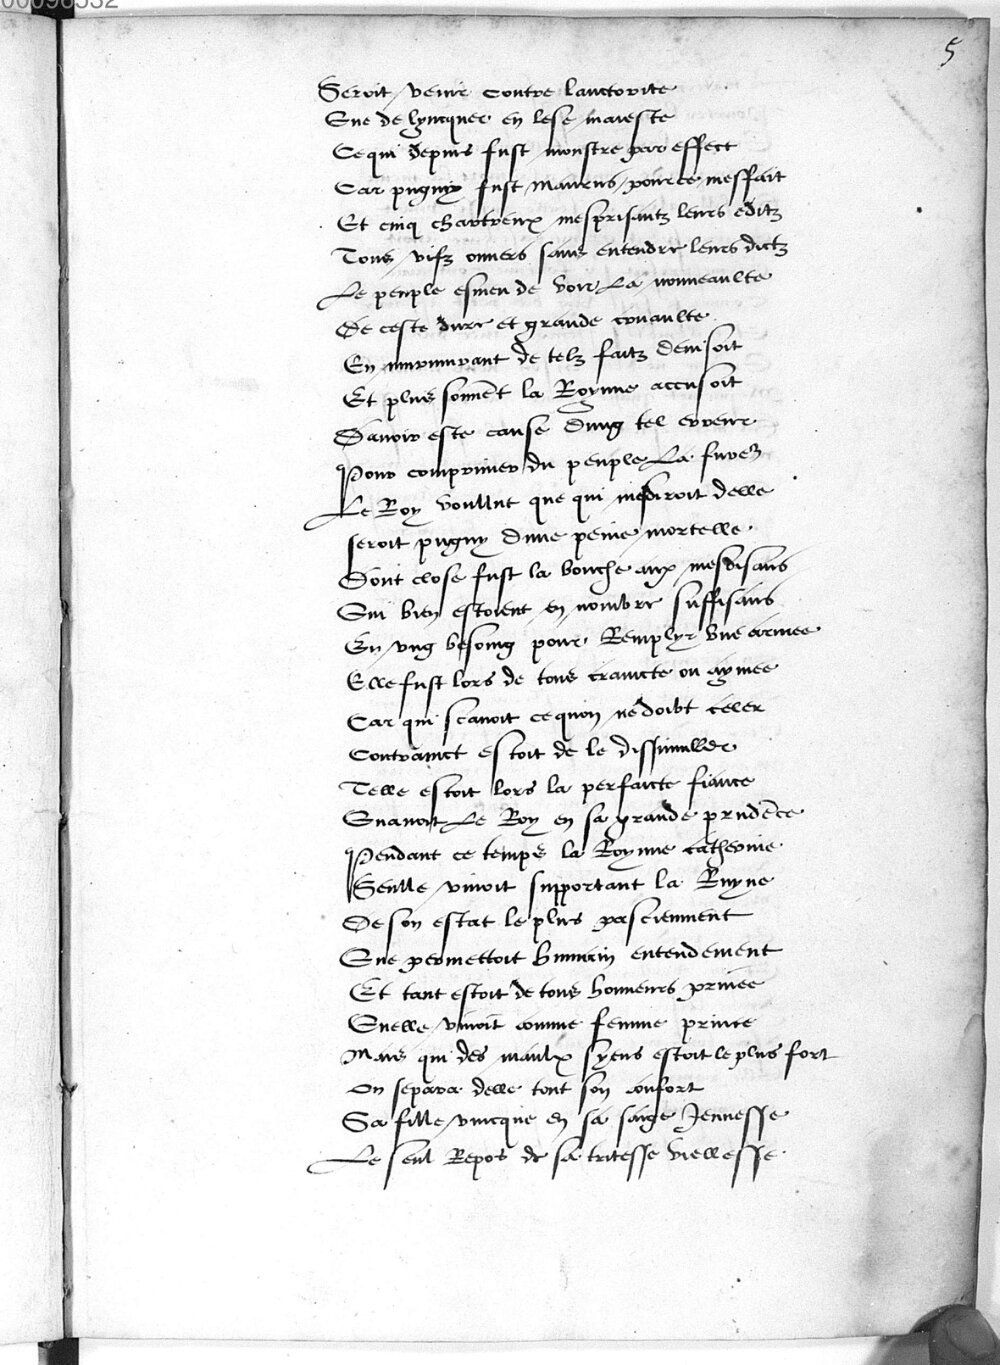 00096532
5
Seroit venir contre lauctorite
Que de lyncquer en lese maieste
Ce qui depuis fust monstre par effect
Car pugniz fust Maurus pour ce meffait
Et cinq chartreux mesprisantz leurs editz
Tous vifz ouvers sans entendre leurs dictz
Le peuple esmeu de voir La nouveaulte
De ceste dure et grande cruaulte
En murmurant de telz faitz devisoit
Et plus souvēt la Royne accusoit
Davoir este cause dung tel erreur
Pour comprimer du peuple La fureur
Le Roy voullut que qui mesdiroit delle
seroit pugny dune peine mortelle
Dont close fust la bouche aux mesdisans
Qui bien estoient en nombre suffisans
En ung besoing pour Remplyr une armee
Elle fust lors de tous craincte ou aymee
Car qui scavoit ce quon ne doibt celer
Contrainct estoit de le dissimuller
Telle estoit lors la perfaicte fiance
Quavoit Le Roy en sa grande prudēce
Pendant ce temps la Royne catherine
Seulle vivoit supportant la Ruyne
De son estat le plus pasciemment
Que permettoit humain entendement
Et tant estoit de tous honneurs privee
Quelle vivoit comme femme privee
Mais qui des maulx syens estoit le plus fort
On separa delle tout son confort
Sa fille unicque en sa saige Jeunesse
Le seul Repos de sa tritesse viellesse